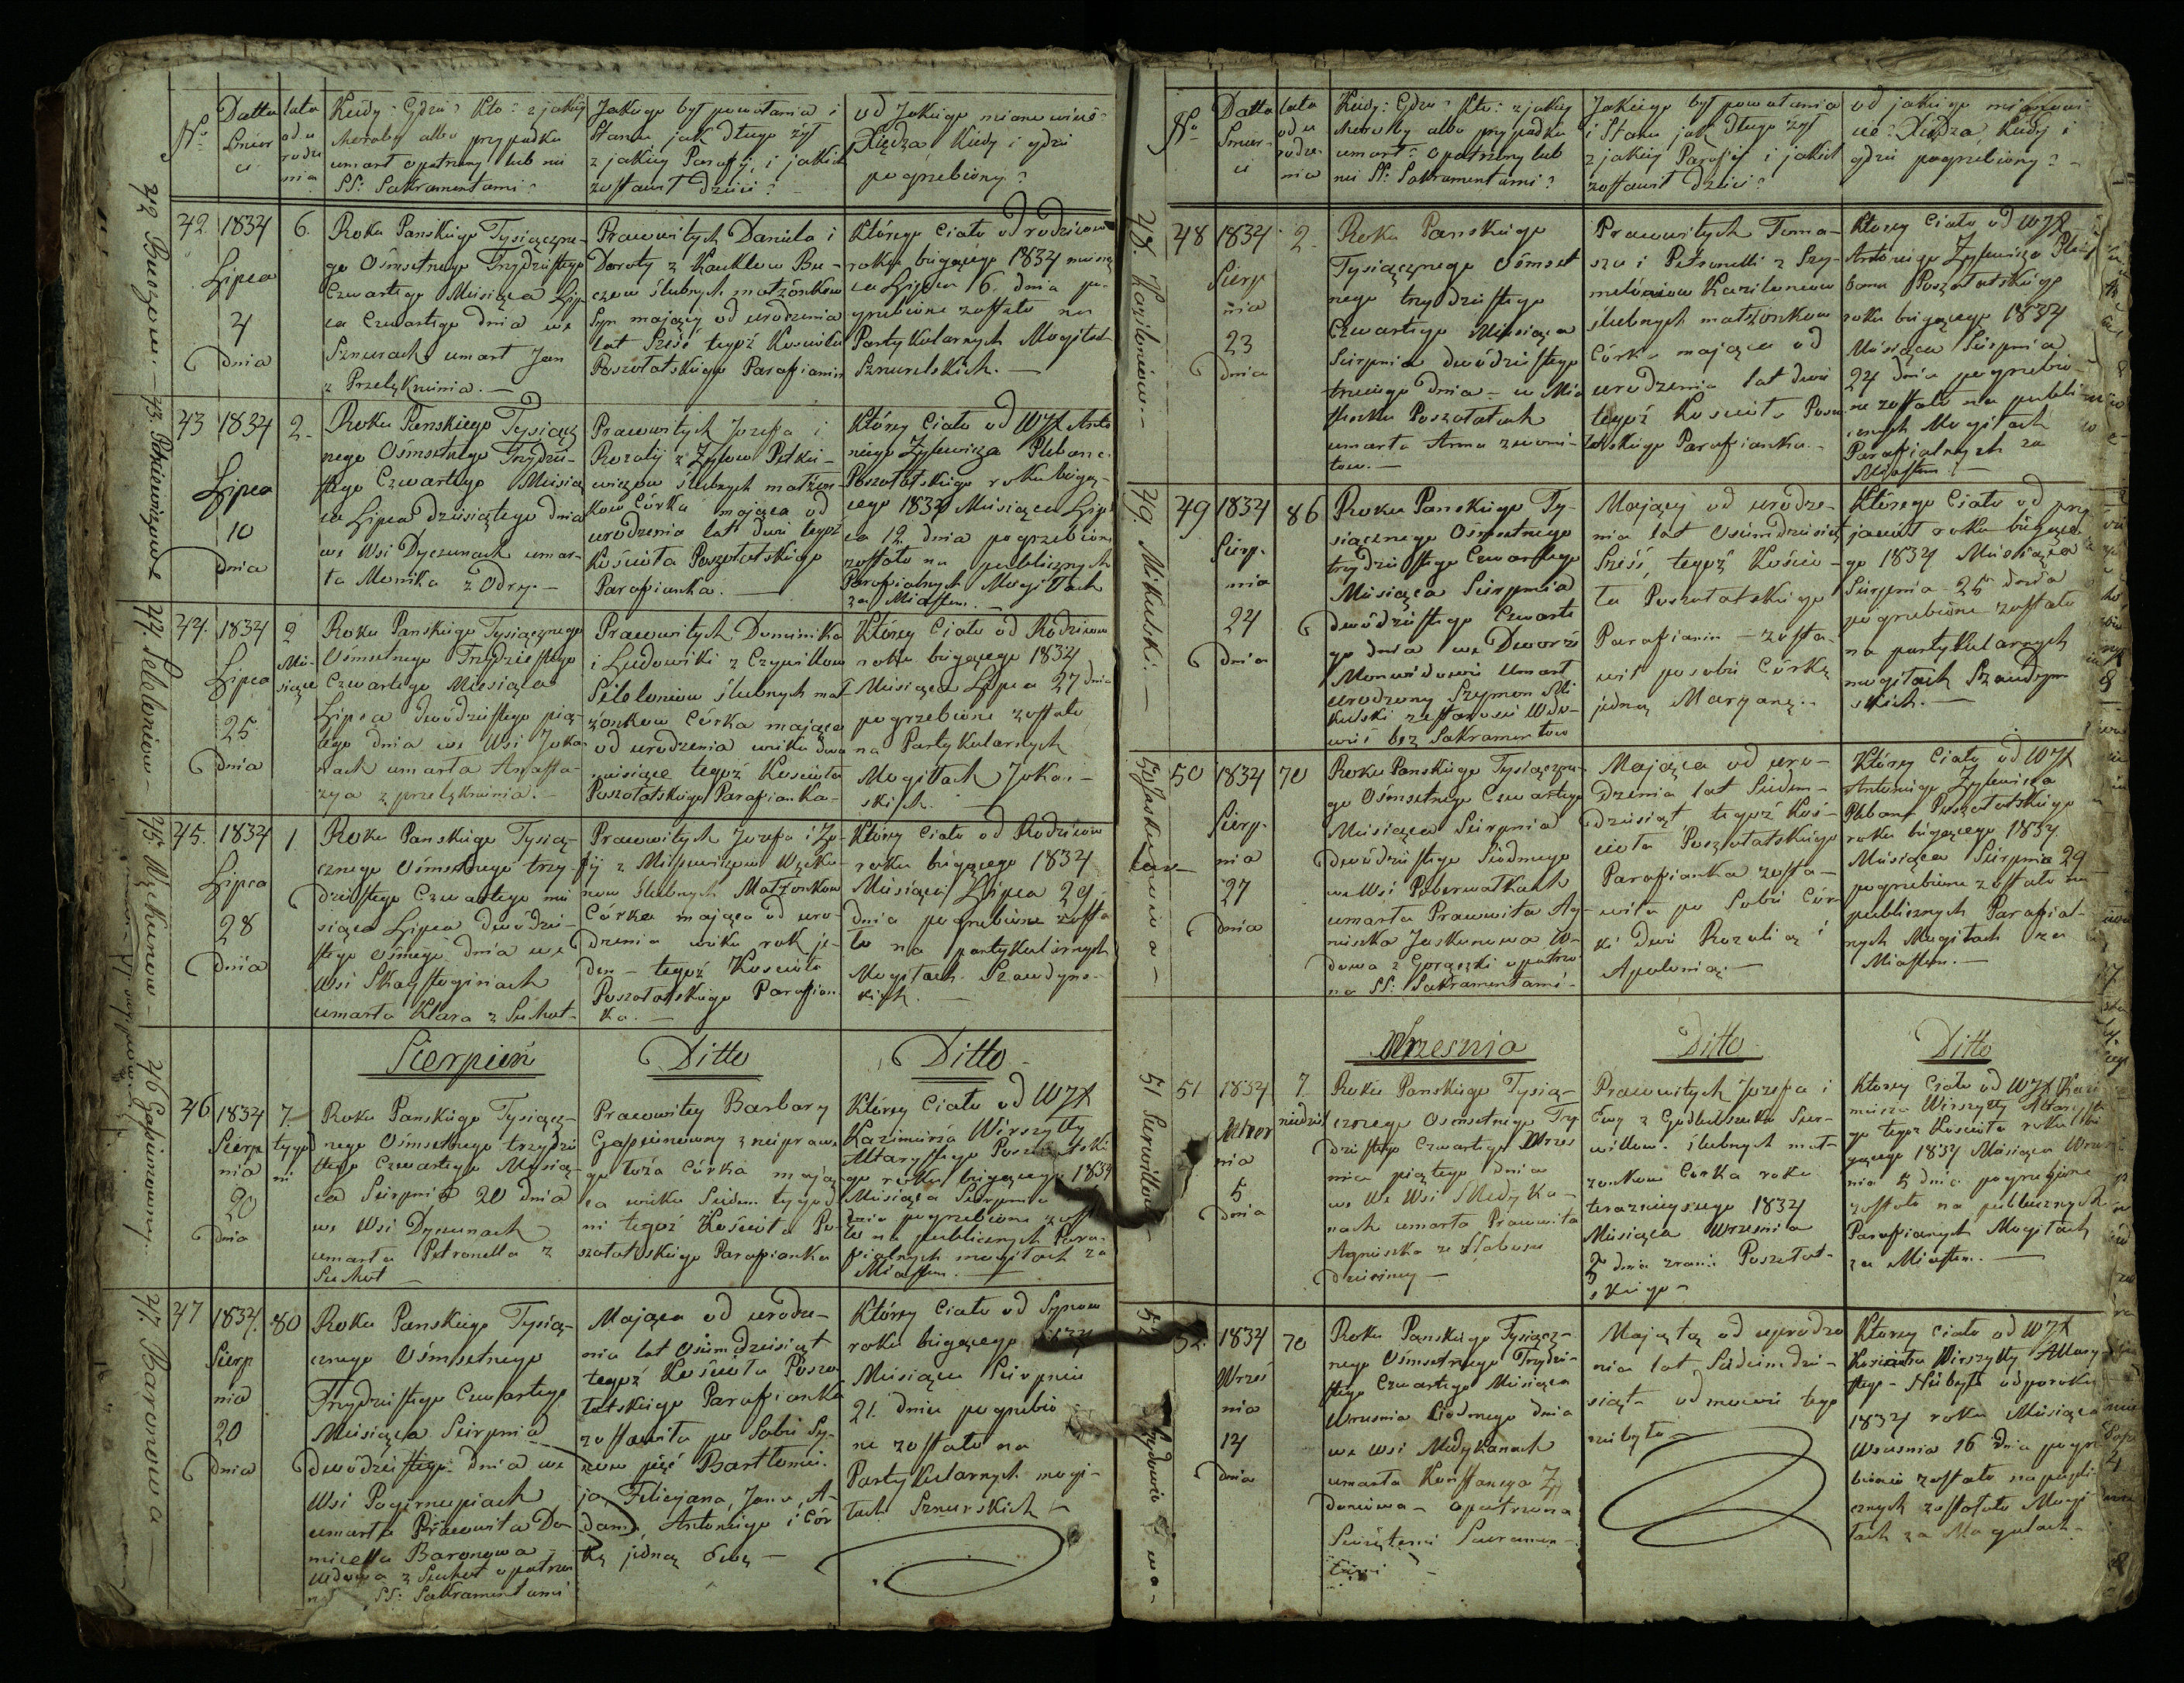 No
Datta Smierci
lata od urodzenia
Kiedy? Gdzie? Kto? z jakiey
choroby albo przypadku
umarł opatrzony lub nie
SS: Sakramentami?
Jakiego był powołania i
Stanu jak długo żył
z jakiey Parafij i jakich
zostawił dzieci?
od Jakiego mianowicie
Xiędza, Kiedy i gdzie
pogrzebiony?
42.
1834
Lipca
4
dnia
6.
Roku Panskiego Tysiączne-
go Ośmsetnego Trzydziestego
Czwartego Miesiąca Lip-
ca Czwartego dnia we
Sznurach umarł Jan
z Przelęknienia.—
Prawowitych Daniela i
Doroty z Kauklow Bu-
czow ślubnych małżonkow
Syn maiący od urodzenia
lat Sześć tegoż Kościoła
Poszołatskiego Parafianin
Którego Ciało od rodzicow
roku bieżącego 1834 miesią
ca Lipca 6. dnia po-
grzebione zostało na
Partykularnych Mogiłach
Sznurelskich.—
43
1834
Lipca
10
dnia
2.
Roku Panskiego Tysiącz
nego Ośmsetnego Trzydzie-
stego Czwartego Miesią
ca Lipca dziesiątego dnia
we Wsi Dyczunach umar-
ła Monika z Odry.—
Prawowitych Jozefa i
Rozalij z Zyłow Petkie-
wiczow ślubnych małżon-
kow Córka mająca od
urodzenia lat dwie tegoż
Kościoła Poszołatskiego
Parafianka.—
Którey Ciało od WJX Anto
niego Zylewicza Plebana
Poszołatskiego roku bieżą-
cego 1834 Miesiąca Lip
ca 12 dnia pogrzebione
zostało na publicznych
Parafialnych Mogiłach
za Miastem.—
44.
1834
Lipca
25
dnia
2
Mie-
siące
Roku Panskiego Tysiącznego
Ośmsetnego Trzydziestego
Czwartego Miesiąca
Lipca dwódziestego pią-
tego dnia we Wsi Joka-
nach umarła Anasta-
zya z przelęknienia.—
Prawowitych Dominika
i Ludowiki z Czywillow
ślubnych mał
żonkow Córka mająca
od urodzenia wieku dwa
miesiące tegoż Kościoła
Poszołatskiego Parafianka-
Którey Ciało od Rodzicow
roku bieżącego 1834
Miesiąca Lipca 27 dnia
pogrzebione zostało
na Partykularnych
Mogiłach Jokan-
skich.—
45.
1834
Lipca
28
dnia
1.
Roku Panskiego Tysią-
cznego Ośmsetnego trzy-
dziestego Czwartego mie
siąca Lipca dwódzie-
stego ośmego dnia we
Wsi
umarła Klara z Suchot-
Prawowitych Jozefa i Zo-
fij z
ślubnych Małżonkow
Córka mająca od uro-
dzenia wieku rok je-
den — tegoż Kościoła
Poszołatskiego Parafian
ka.—
Którey Ciało od Rodzicow
roku bieżącego 1834
Miesiąca Lipca 29
dnia pogrzebione zosta
ło na partykularnych
Mogiłach Szaudyns-
kich.—
Sierpień
Ditto
Ditto
46
1834
Sierp
nia
20
dnia
7.
tygod
ni
Roku Panskiego Tysiącz-
nego Ośmsetnego trzydzie
stego Czwartego Miesią-
ca Sierpnia 20 dnia
we Wsi Dyczunach
umarła Petronella z
Suchot —
Prawowitey Barbary
z nieprawe
go łoża Córka mają
ca wieku Siedem tygod
ni tegoż Kościoła Po-
szołatskiego Parafianka
Którey Ciało od WJX
Kazimierza Wirszyłły
Ałtarystego Poszołatski
go roku bieżącego 1834
Miesiąca Sierpnia
dnia pogrzebione zosta
ło na publicznych Para-
fialnych mogiłach za
Miastem.—
47
1834.
Sierp
nia
20
dnia
80
Roku Panskiego Tysią-
cznego Ośmsetnego
Trzydziestego Czwartego
Miesiąca Sierpnia
dwódziestego dnia we
Wsi Pogirnupiach
umarła Prawowita Do-
micella Baronowa
wdowa z Suchot opatrzo
na SS: Sakramentami
Mająca od urodze-
nia lat Ośimdziesiąt
tegoż Kościoła Poszo
łatskiego Parafianka
zostawiła po Sobie Sy-
now pięć Bartłomie-
ja, Felicyana, Jana, A-
dama, Antoniego i Cór
kę jedną Ewę —
Którey Ciało od Synow
roku bieżącego 1834
Miesiąca Sierpnia
21. dnia pogrzebio
ne zostało na
Partykularnych mogi-
łach Sznurskich —
42 Buczow.—
43. Petkiewiczowe
45. Węckunow—
47. Baronowa—
No
Datta Smierci
lata od urodzenia
Kiedy? Gdzie? Kto? z jakiey
choroby albo przypadku
umarł? opatrzony lub
nie SS: Sakramentami?
Jakiego był powołania
i Stanu jak długo żył
z jakiey Parafij i jakich
zostawił dzieci?
od jakiego mianowi-
cie Xiędza, Kiedy i
gdzie pogrzebiony?—
48
1834
Sierp
nia
23
dnia
2.
Roku Panskiego
Tysiącznego Ośmset
nego trzydziestego
Czwartego Miesiąca
Sierpnia dwódziestego
trzeciego dnia — w Mia
steczku Poszołatach
umarła Anna z womi-
tow.—
Prawowitych Toma-
sza i Petronelli z Szy-
ślubnych małżonkow
Córka mająca od
urodzenia lat dwie
tegoż Kościoła Poszo
łatskiego Parafianka.—
Którey Ciało od WJX
Antoniego Zylewicza Ple-
bana Poszołatskiego
roku bieżącego 1834
Miesiąca Sierpnia
24 dnia pogrzebio-
ne zostało na publi
cznych Mogiłach
Parafialnych za
Miastem.—
49
1834
Sierp-
nia
24
dnia
86
Roku Panskiego Ty-
siącznego Ośmsetnego
trzydziestego Czwartego
Miesiąca Sierpnia
dwódziestego Czwarte
go dnia we Dworze
Monwidowie Umarł
Urodzony Szymon Mi
kulski ze starości Wdo-
wiec bez Sakramentow
Mający od urodze-
nia lat Ośimdziesiąt
Sześć, tegoż Kościo-
ła Poszołatskiego
Parafianin — zosta-
wił po sobie Córkę
jedną Maryanę.—
Którego Ciało od przy
jacioł roku bieżące
go 1834 Miesiąca
Sierpnia 25 dnia
pogrzebione zostało
na partykularnych
mogiłach Szaudyn
skich.—
50
1834
Sierp-
nia
27
dnia
70
Roku Panskiego Tysiączne-
go Ośmsetnego Czwartego
Miesiąca Sierpnia
dwódziestego Siodmego
we Wsi Poberwałkach
umarła Prawowita Ag-
nieszka Jaskunowa W-
dowa z Gorączki opatrzo
na SS: Sakramentami-
Mająca od uro-
dzenia lat Siedem-
dziesiąt tegoż Koś-
cioła Poszołatskiego
Parafianka zosta-
wiła po Sobie Cór
ki dwie Rozalią i
Apolonią.—
Którey Ciało od WJX
Antoniego Zylewicza
Plebana Poszołatskiego
roku bieżącego 1834
Miesiąca Sierpnia 29
pogrzebione zostało na
publicznych Parafial-
nych Mogiłach za
Miastem.—
Wrzesnia
Ditto
Ditto
51
1834
nia
5
dnia
7
niedziel
Roku Panskiego Tysią-
cznego Osmsetnego Trzy
dziestego Czwartego Wrzes
nia piątego dnia
we Wsi Medyka-
nach umarła Prawowita
Agnieszka ze Słabości
dziecinney —
Prawowitych Jozefa i
Ewy z
ślubnych mał-
żonkow Córka roku
teraznieyszego 1834
Miesiąca Wrzesnia
5 dnia Poszołat-
skiego—
Którey Ciało od WJX Kazi-
mierza Wirszyłły Ałtaryste
go tegoż Kościoła roku bie
żącego 1834 Miesiąca Wrześ
nia dnia pogrzebione
zostało na publicznych
Parafianych Mogiłach
za Miastem.—
52.
1834
Wrześ
nia
14
dnia
70
Roku Panskiego Tysiącz-
nego Ośmsetnego Trzydzie-
stego Czwartego Miesiąca
Wrzesnia dnia
we wsi Medykanach
umarła Konstancya
opatrzona
Swiętemi Sacramen-
tami —
od urodze
nia lat Siedimdzie-
siąt
niebyło—
Którey Ciało od WJX
Wirszyłły Ałtary-
stego —
1834 roku Miesiąca
Wrzesnia 16 dnia pogrze
bione zostało na publi-
cznych zostało Mogi
łach za
48.
49. Mikulski.—
50 Jaskunowa—
51
52